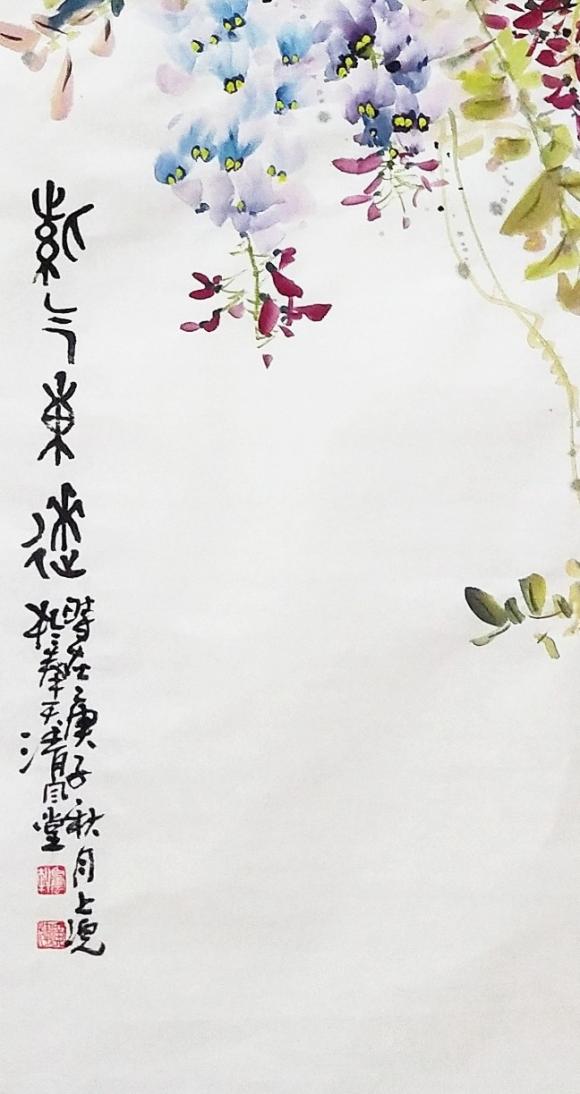 紫气東來
時在庚子秋月上浣
於奉天清風堂